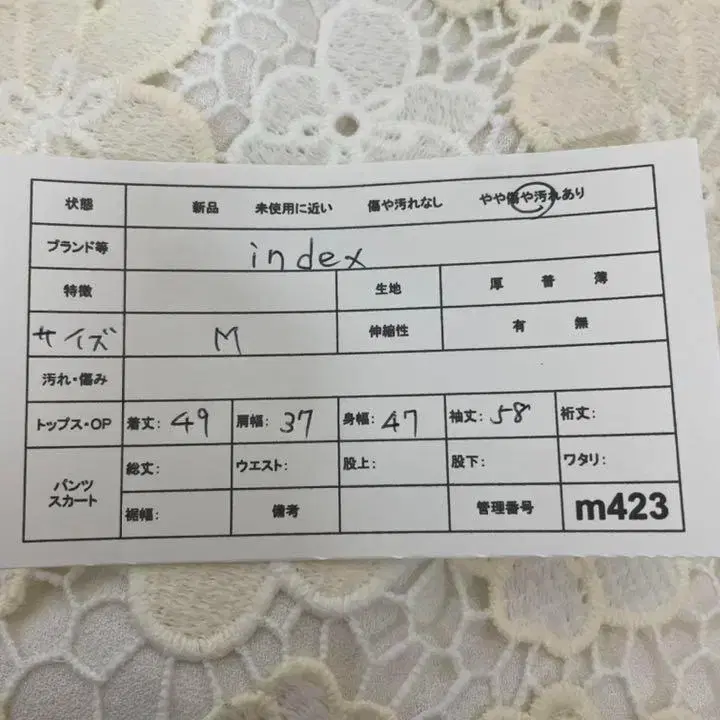 状態 新品 未使用に近い 傷や汚れなし やや傷や汚れあり
ブランド等 index
特徴 生地 厚 普 薄
サイズ M 伸縮性 有 無
汚れ・傷み
トップス・OP 着丈: 49 肩幅: 37 身幅: 47 袖丈: 58 裄丈:
パンツ スカート 総丈: ウエスト: 股上: 股下: ワタリ:
裾幅: 備考 管理番号 m423